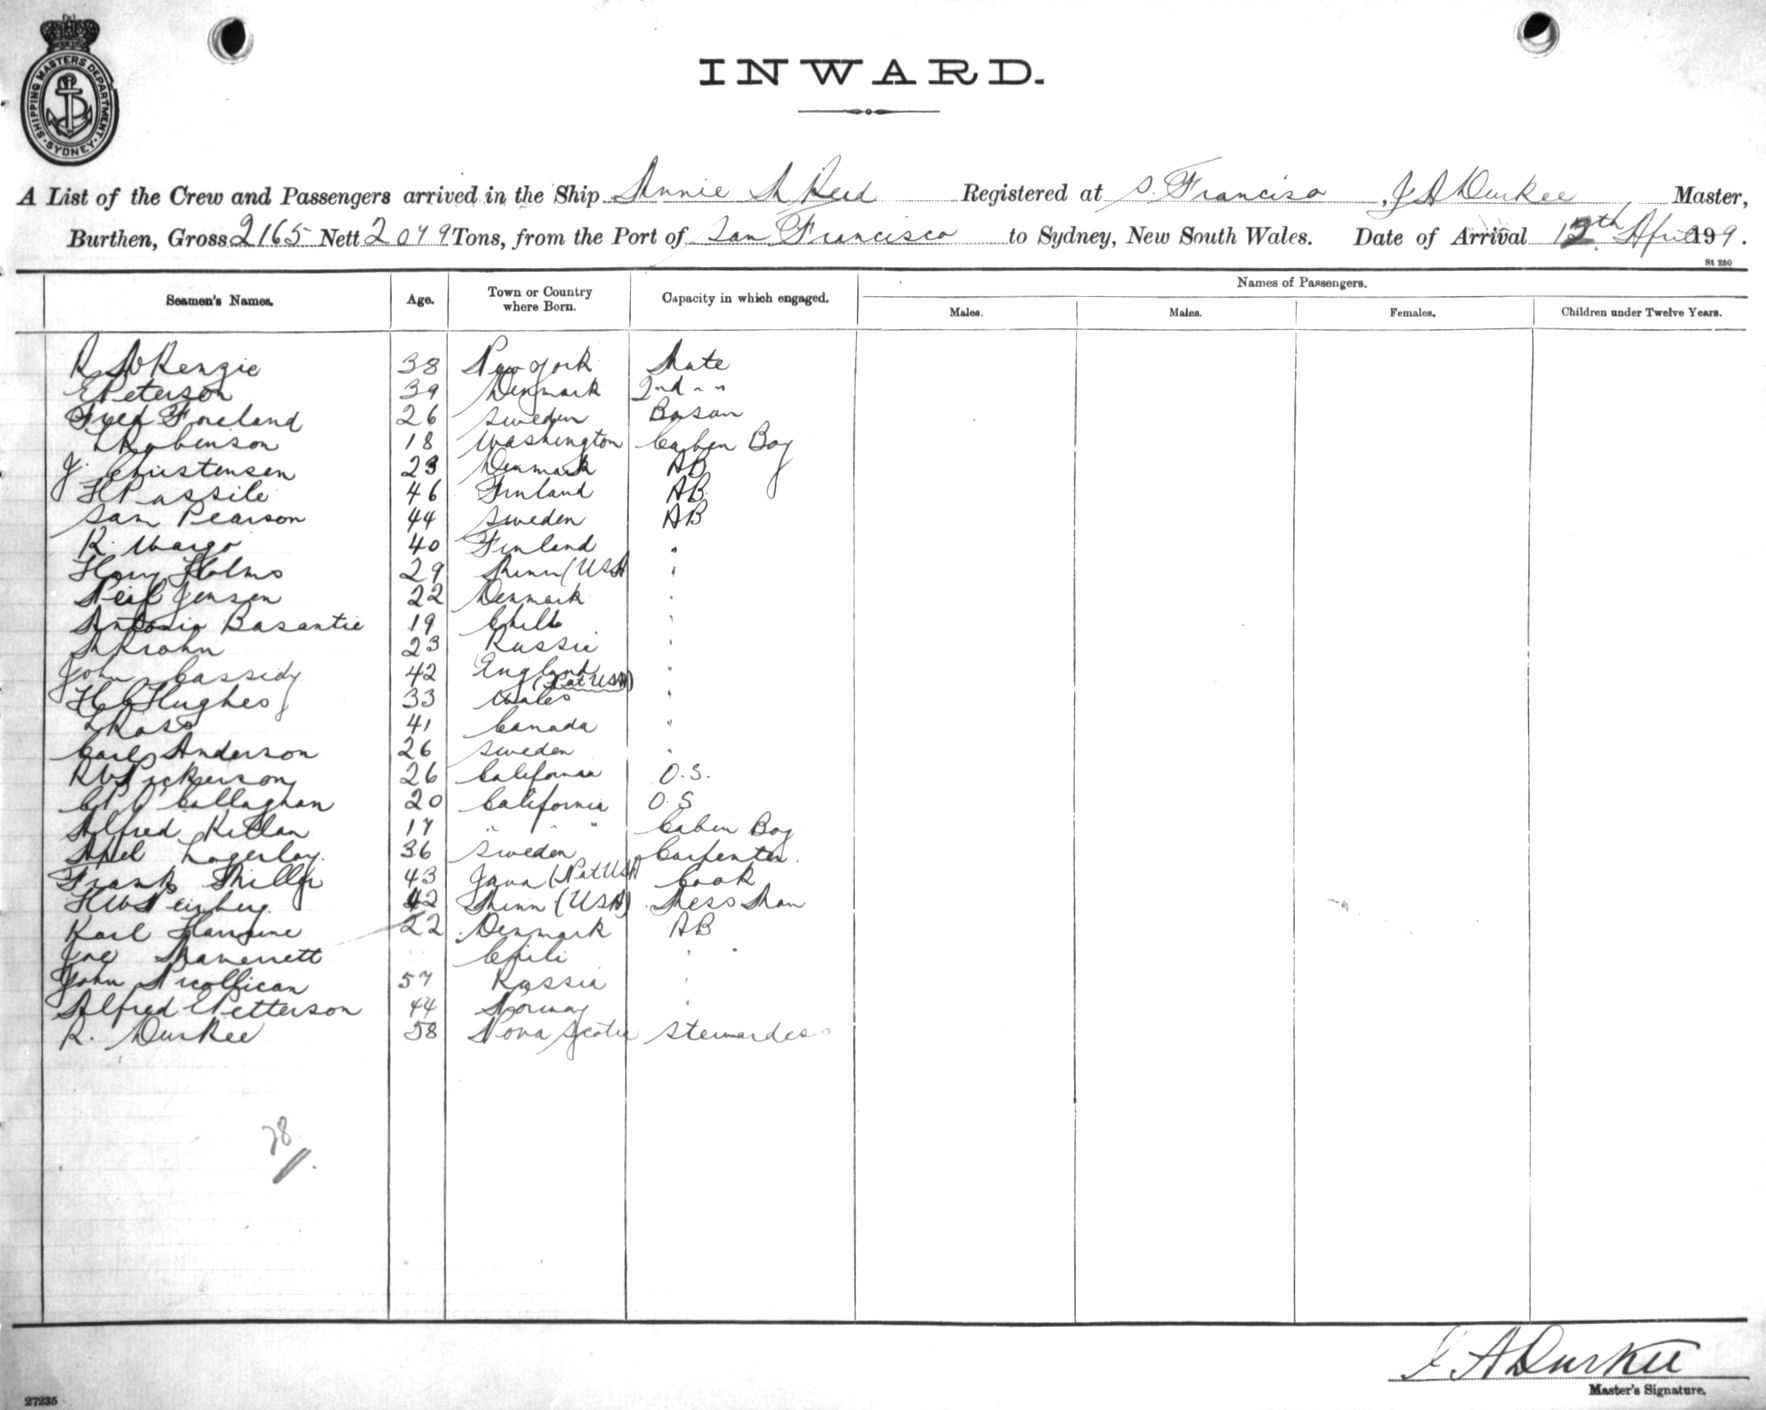 SHIPPING MASTERS DEPARTMENT
SYDNEY
INWARD.
A List of the Crew and Passengers arrived in the Ship Annie M Reid Registered at S. Francisco, J A Durkee Master,
Burthen, Gross 2165 Nett 2079 Tons, from the Port of San Francisco to Sydney, New South Wales. Date of Arrival 12th April 199.
St 250
Seamen's Names. Age. Town or Country where Born. Capacity in which engaged. Names of Passengers.
Males. Males. Females. Children under Twelve Years.
R McKenzie 38 New York Mate
E Peterson 39 Denmark 2nd " "
Fred Foreland 26 Sweden Bosun
L Robinson 18 Washington Caben Boy
J. Christensen 23 Denmark AB
H Passile 46 Finland AB
Sam Pearson 44 Sweden AB
K. Wargo 40 Finland "
Holms 29 Minn (USA "
Neil Jensen 22 Denmark "
Antonio Basantie 19 Chili "
A Krohn 23 Russia "
John Cassidy 42 England (Nat USA) "
H C Hughes 33 Wales "
L Ross 41 Canada "
Carl Anderson 26 Sweden "
R W Nickerson 26 California O.S.
C P O'Callaghan 20 California O.S
Alfred 17 " " " Caben Boy
Axel 36 Sweden Carpenter.
Frank Miller 43 Java (Nat USA) Cook
42 Minn (USA) Mess Man
Karl 22 Denmark AB
Joe Chili " "
John 57 Russia "
Alfred E Petterson 44 Norway "
R. Durkee 58 Nova Scotia Stewardess
28
J A Durkee
Master's Signature.
27235